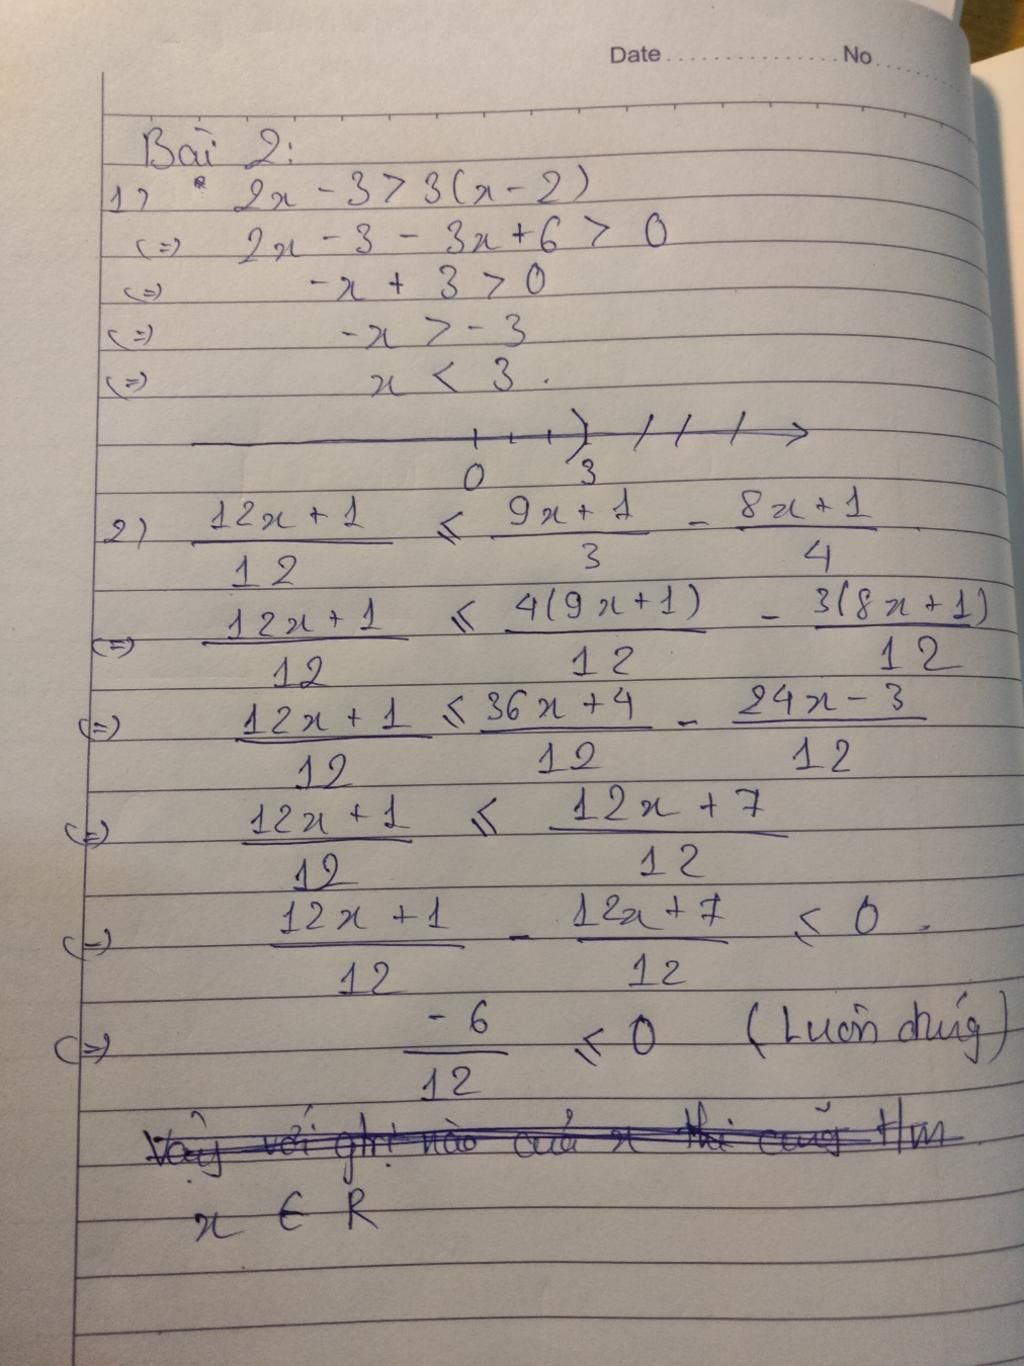 Date................No........
Bài 2:
1) 2x - 3 > 3(x - 2)
(=) 2x - 3 - 3x + 6 > 0
(=) -x + 3 > 0
(=) -x > - 3
(=) x < 3 .
0 3
2) (12x + 1)/12 ⩽ (9x + 1)/3 - (8x + 1)/4
(=) (12x + 1)/12 ⩽ 4(9x + 1)/12 - 3(8x + 1)/12
(=) (12x + 1)/12 ⩽ (36x + 4)/12 - (24x - 3)/12
(=) (12x + 1)/12 ⩽ (12x + 7)/12
(=) (12x + 1)/12 - (12x + 7)/12 ⩽ 0 .
(=) -6/12 ⩽ 0 (Luôn đúng)
Vậy với gtrị nào của x thì cũng t/m
x ∈ R